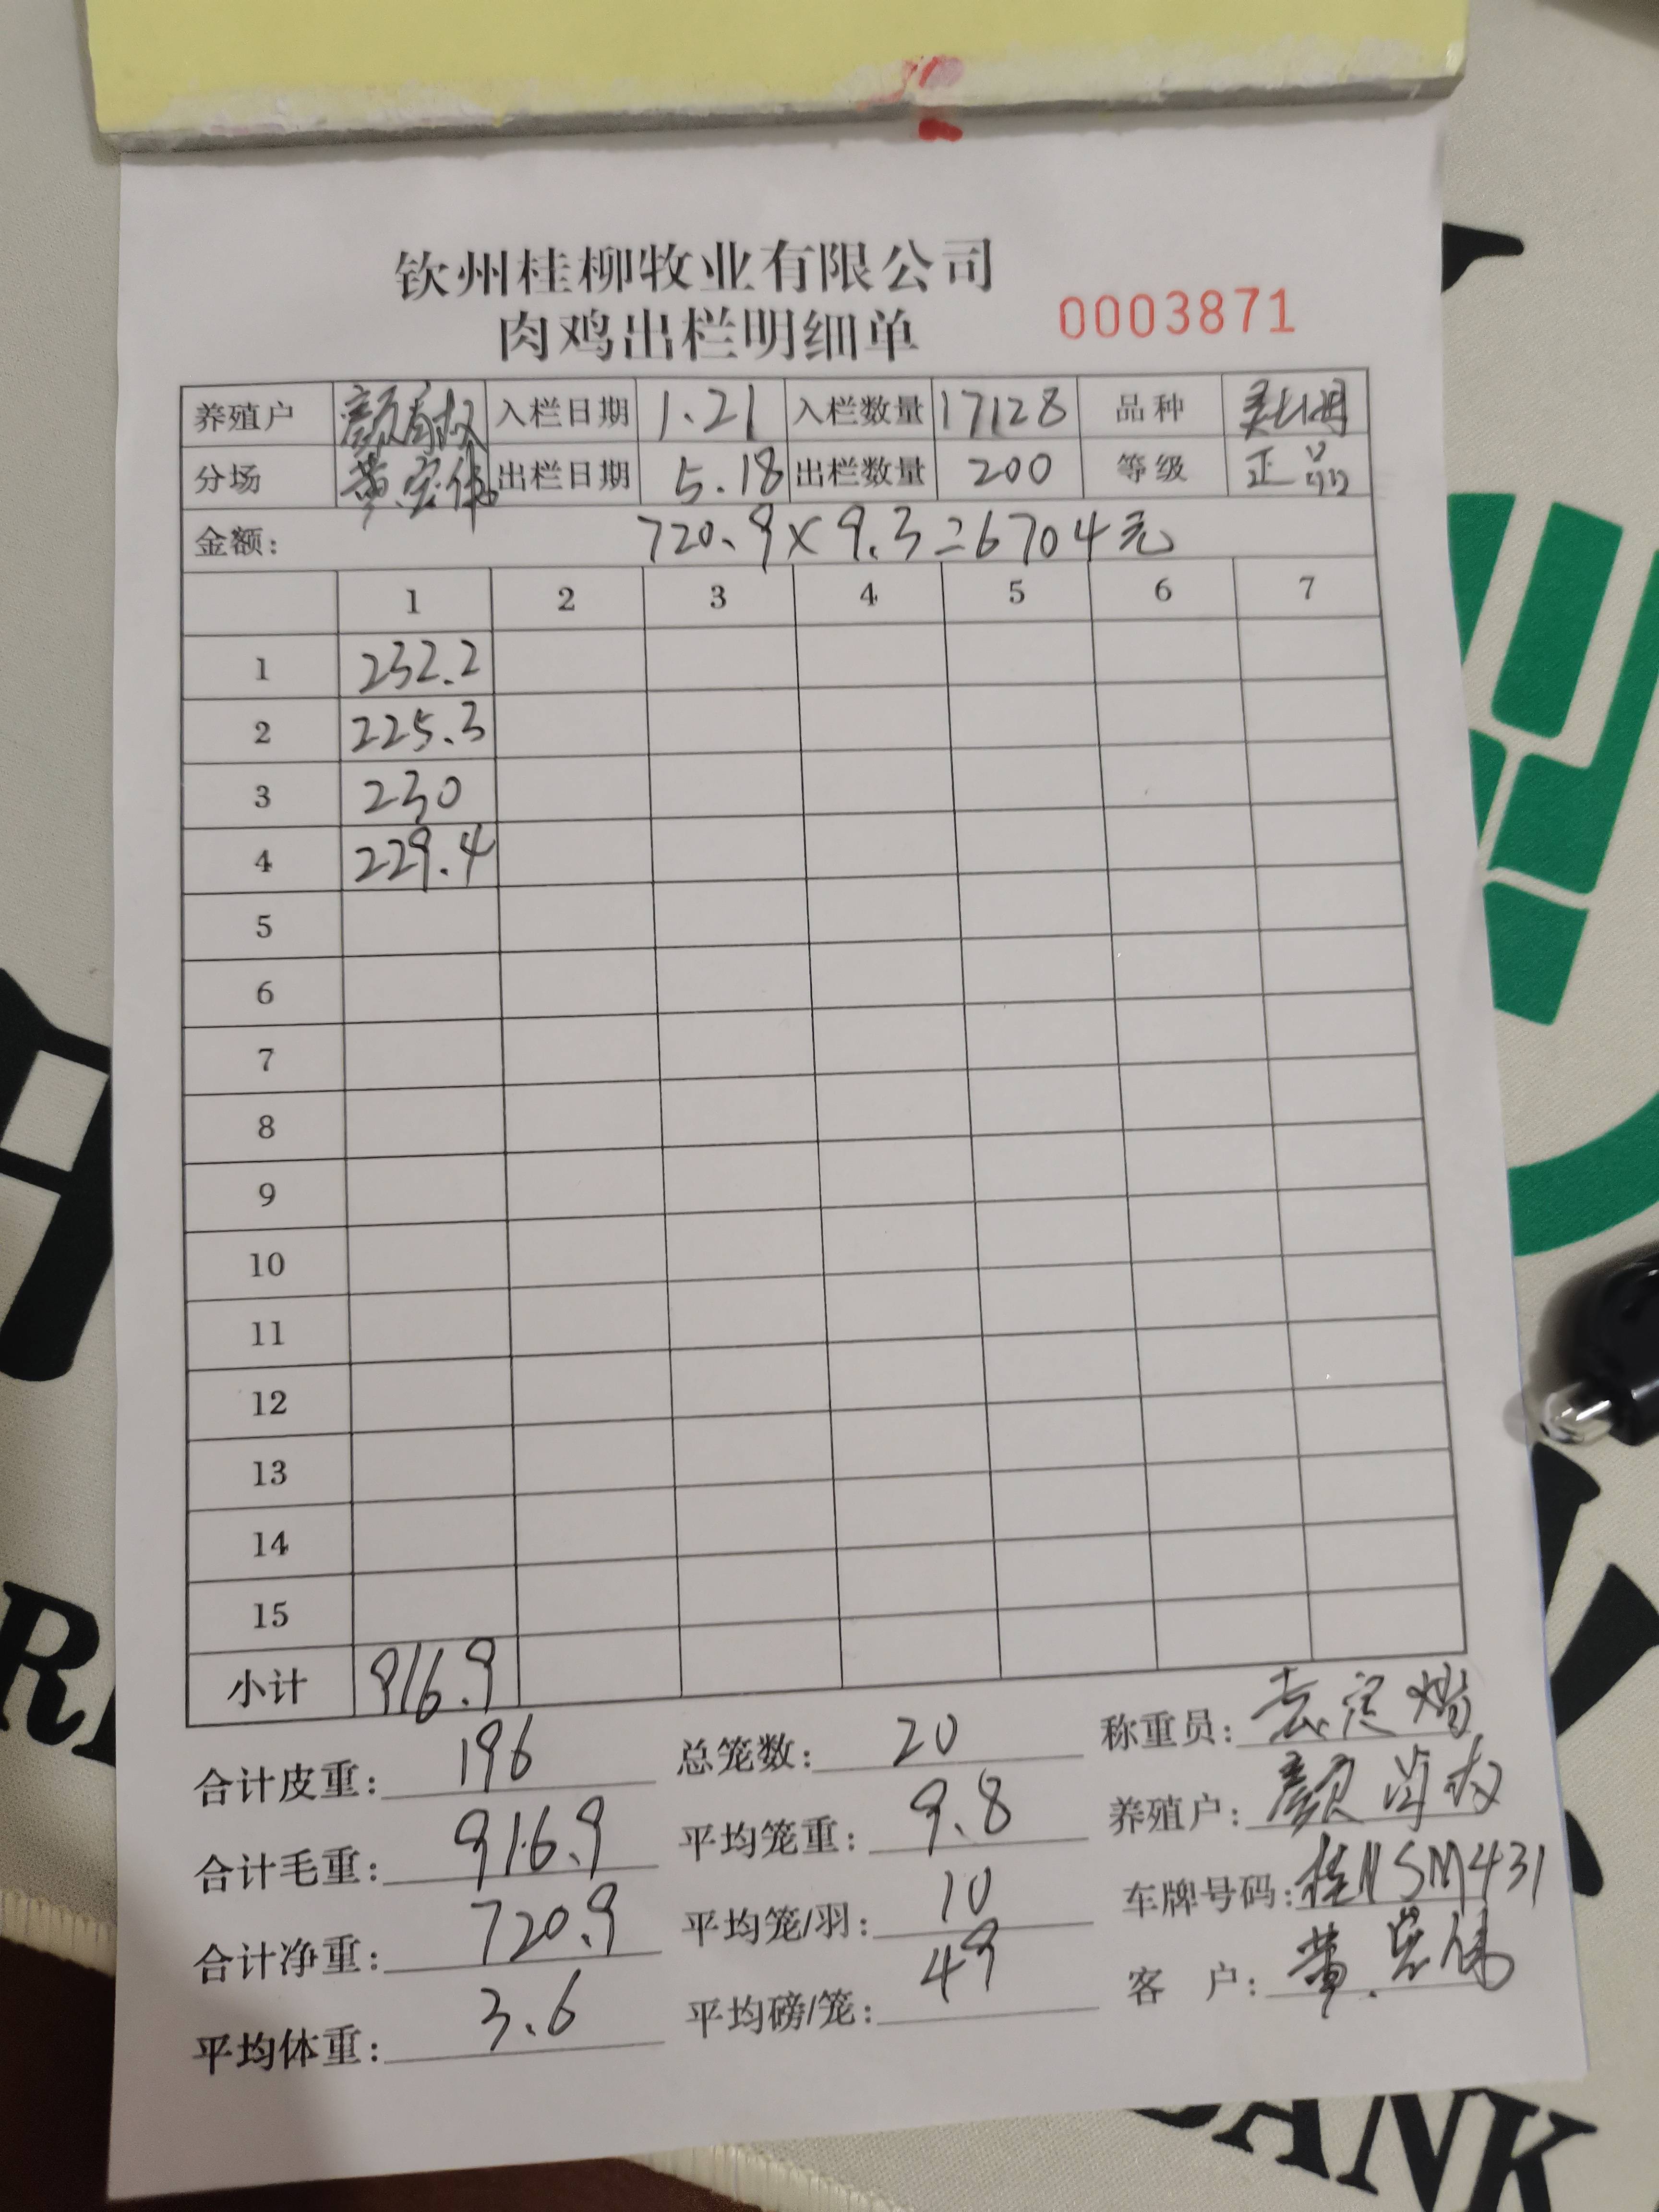 钦州桂柳牧业有限公司
肉鸡出栏明细单 0003871
养殖户 颜 入栏日期 1.21 入栏数量 17128 品种
分场 黄宏伟 出栏日期 5.18 出栏数量 200 等级 正品
金额: 720.9×9.3=6704元
1 2 3 4 5 6 7
1 232.2
2 225.3
3 230
4 229.4
5
6
7
8
9
10
11
12
13
14
15
小计 916.9
合计皮重: 196 总笼数: 20 称重员:
合计毛重: 916.9 平均笼重: 9.8 养殖户: 颜
合计净重: 720.9 平均笼/羽: 10 车牌号码: 桂NSM431
平均体重: 3.6 平均磅/笼: 49 客 户: 黄宏伟
RI
BANK